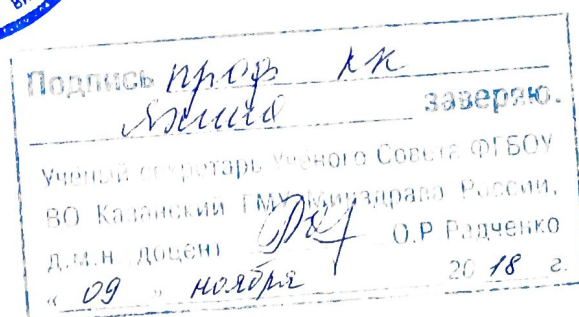 Подпись проф КК
заверяю.
Ученый секретарь Ученого Совета ФГБОУ
ВО Казанский ГМУ Минздрава России,
д.м.н. доцент О.Р Радченко
« 09 » ноября 20 18 г.